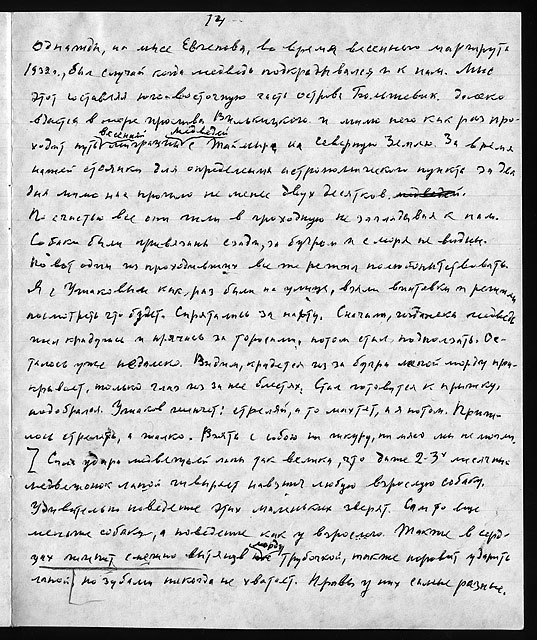 14
Однажды, на мысе Евгенова, во время весеннего маршрута
1932 г., был случай когда медведь подкрадывался и к нам. Мыс
этот составляя юго-восточную часть острова Большевик. далеко
вдается в море пролива Вилькицкого и мимо него как раз про-
весенней медведей
ходит путь миграции с Таймыра на Северную Землю. За время
нашей стоянки для определения астрономического пункта за два
дня мимо нас прошло не менее двух десятков медведей.
По счастью все они шли в проходную не заглядывая к нам.
Собаки были привязаны сзади, за бугром и с моря не видны.
Но вот один из проходивших все же решил полюбопытствовать.
Я с Ушаковым как раз были на улице, взяли винтовки и решили
посмотреть что будет. Спрятались за нарту. Сначала, издалека медведь
шел крадучись и прячась за торосами, потом стал подползать. Ос-
талось уже недалеко. Видим, крадется из за бугра лапой морду при-
крывает, только глаз из за нее блестят. Стал готовится к прыжку,
подобрался. Ушаков шепчет: стреляй, а то махнет, а я потом. Приш-
лось стрелять, а жалко. Взять с собою ни шкуру, ни мясо мы не могли
Сила удара медвежьей лапы так велика, что даже 2-3х месячный
медвежонок лапой сшибает навзничь любую взрослую собаку.
Удивительно поведение этих маленьких зверят. Сам то еще
меньше собаки, а поведение как у взрослого. Также в серд-
морду
цах шипит смешно вытянув трубочкой, также норовит ударить
лапой но зубами никогда не хватает. Нравы у них самые разные.